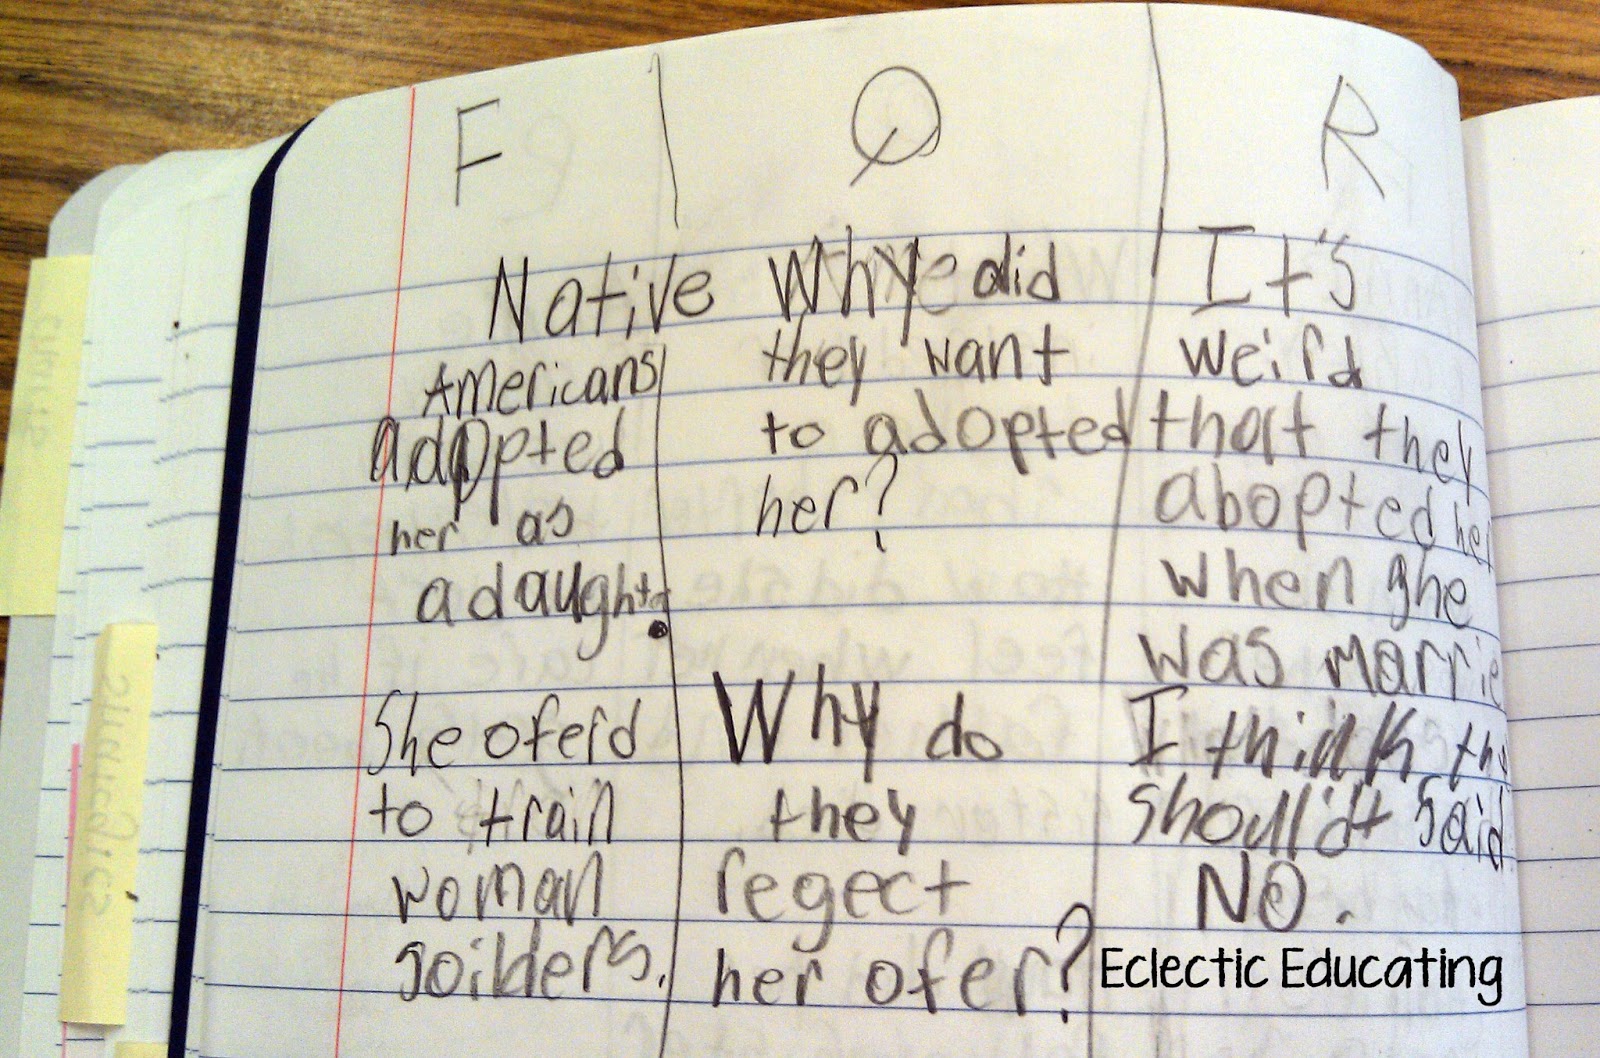 F Q R
Native Why did It's
Americans they want weird
adopted to adopted that they
her as her? abopted her
a daught. when she
was marrie
She oferd Why do I think
to train they should't said
woman regect NO.
soilders. her ofer?
Eclectic Educating